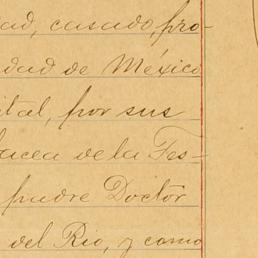 dad, casado, pro-
dad de México
ital, por sus
bacea de la Tes-
padre Doctor
del Rio, y como